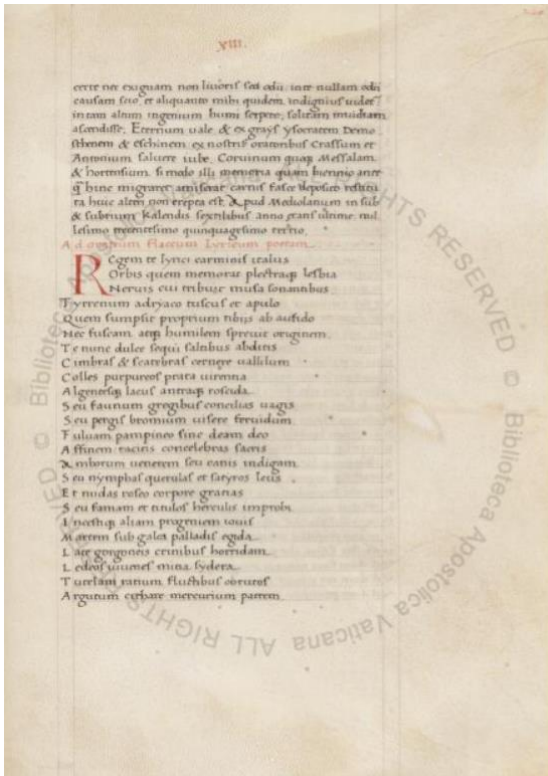 XIII.
certe nec exiguam non livoris sed odii inter nullam odii
causam scio, et aliquanto mihi quidem indignius videtur
in tam altum ingenium humi serpere, solitam invidiam
ascendisse. Eternum vale & ex grays ysocratem Demo
sthenem & eschinem ex nostris oratoribus Crassum et
Antonium salvere iube. Corvinum quoq; Messalam
& hortensium, si modo illi memoria quam biennio ante
q̃ hinc migraret amiserat carnis fasce deposito restitu
ta huic alteri non erepta est. & pud Mediolanum in sub
& subrium Kalendis sextilibus anno etatis ultime mil
lesimo trecentesimo quinquagesimo tertio.
Ad oratium flaccum lyricum poetam
REgem te lyrici carminis italus
Orbis quem memorat plectraq; lesbia
Nervis cui tribuit musa sonantibus
Tyrrenum adryaco tuscus et apulo
Quem sumpsit proprium tibris ab aufido
Nec fuscam atq; humilem sprevit originem
Te nunc dulce sequi saltibus abditis
Cimbras & scatebras cernere vallium
Colles purpureos prata virentia
Algentesq; lacus antraq; roscida
Seu faunum gregibus concilias vagis
Seu pergis bromium visere fervidum
Fulvam pampineo sine deam deo
Affinem tacitis concelebras sacris
Amborum venerem seu canis indigam
Seu nymphas querulas et satyros levis
Et nudas roseo corpore gratias
Seu famam et titulos herculis improbi
Incestiq; aliam progeniem iovis
Martem sub galea palladis egida
Late gorgoneis crinibus horridam
Ledeos iuvenes mitia sydera
Tutelam ratium fluctibus obrutos
Argutum cithare mercurium patrem
© Biblioteca Apostolica Vaticana ALL RIGHTS RESERVED